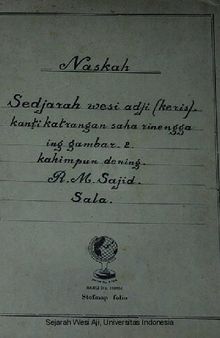 Naskah
Sedjarah wesi adji (keris).
kanti katrangan saha rinengga
ing gambar. 2.
kahimpun dening.
R. M. Sajid.
Sala.
Stofmap folio
Sejarah Wesi Aji, Universitas Indonesia